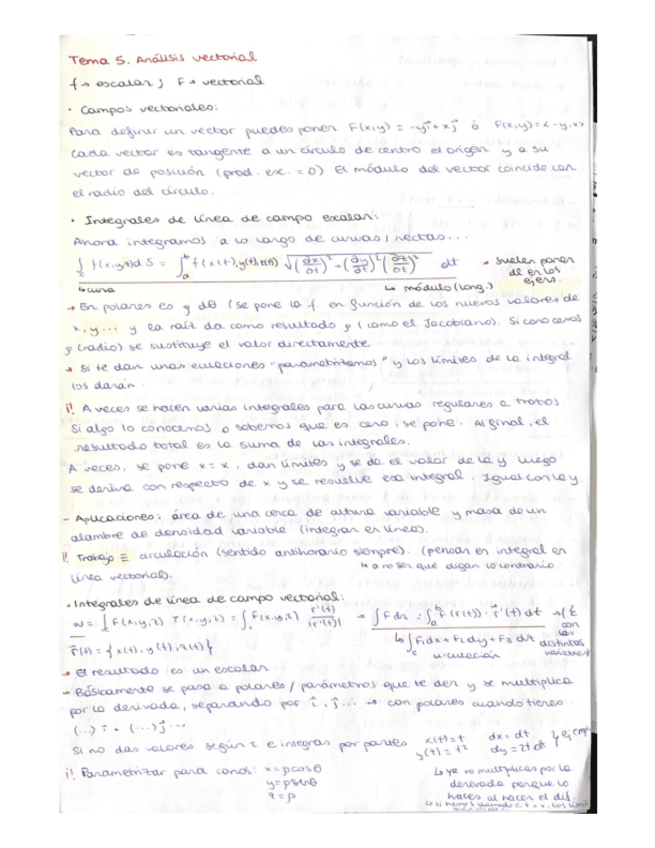 Tema 5. Análisis vectorial
f → escalar ; F → vectorial
· Campos vectoriales:
Para definir un vector puedes poner F(x,y) = -yi + xj ó F(x,y) = <-y,x>
Cada vector es tangente a un círculo de centro el origen y a su
vector de posición (prod. esc. = 0) El módulo del vector coincide con
el radio del círculo.
· Integrales de línea de campo escalar:
Ahora integramos a lo largo de curvas / rectas...
∫c f(x,y,z) dS = ∫a^b f(x(t), y(t), z(t)) √((dx/dt)² + (dy/dt)² (dz/dt)²) dt → suelen poner
dl en los
ejerc.
↳ curva ↳ módulo (long.)
→ En polares es ρ dθ (se pone la f. en función de los nuevos valores de
x, y... y la raíz da como resultado ρ (como el Jacobiano). Si conocemos
ρ (radio) se sustituye el valor directamente
→ Si te dan unas ecuaciones "parametrizamos" y los límites de la integral
los darán.
¡! A veces se hacen varias integrales para las curvas regulares a trozos.
Si algo lo conocemos o sabemos que es cero, se pone. Al final, el
resultado total es la suma de las integrales.
A veces, se pone x = x, dan límites y se da el valor de la y. Luego
se deriva con respecto de x y se resuelve esa integral. Igual con la y.
- Aplicaciones: área de una cerca de altura variable y masa de un
alambre de densidad variable (integrar en línea).
¡! Trabajo ≡ circulación (sentido antihorario siempre). (pensar en integral en
↳ a no ser que digan lo contrario
línea vectorial).
· Integrales de línea de campo vectorial:
W = ∫c F(x,y,z) T(x,y,z) = ∫c F(x,y,z) r'(t)/|r'(t)| → ∫F dr = ∫a^b F(r(t)) · r'(t) dt → (t
con
las
distintas
variables)
r(t) = {x(t), y(t), z(t)}
↳ ∫c F1dx + F2dy + F3dz
circulación
→ El resultado es un escalar
→ Básicamente se pasa a polares / parámetros que te den y se multiplica
por la derivada, separando por i, j ... → con polares cuando tienes
(...) i + (...) j ...
Si no das valores según t e integras por partes x(t) = t dx = dt } ejemplo
y(t) = t² dy = 2t dt
¡! Parametrizar para conos: x = ρ cos θ
y = ρ sen θ
z = ρ
↳ ya no multiplicas por la
derivada porque lo
haces al hacer el dif.